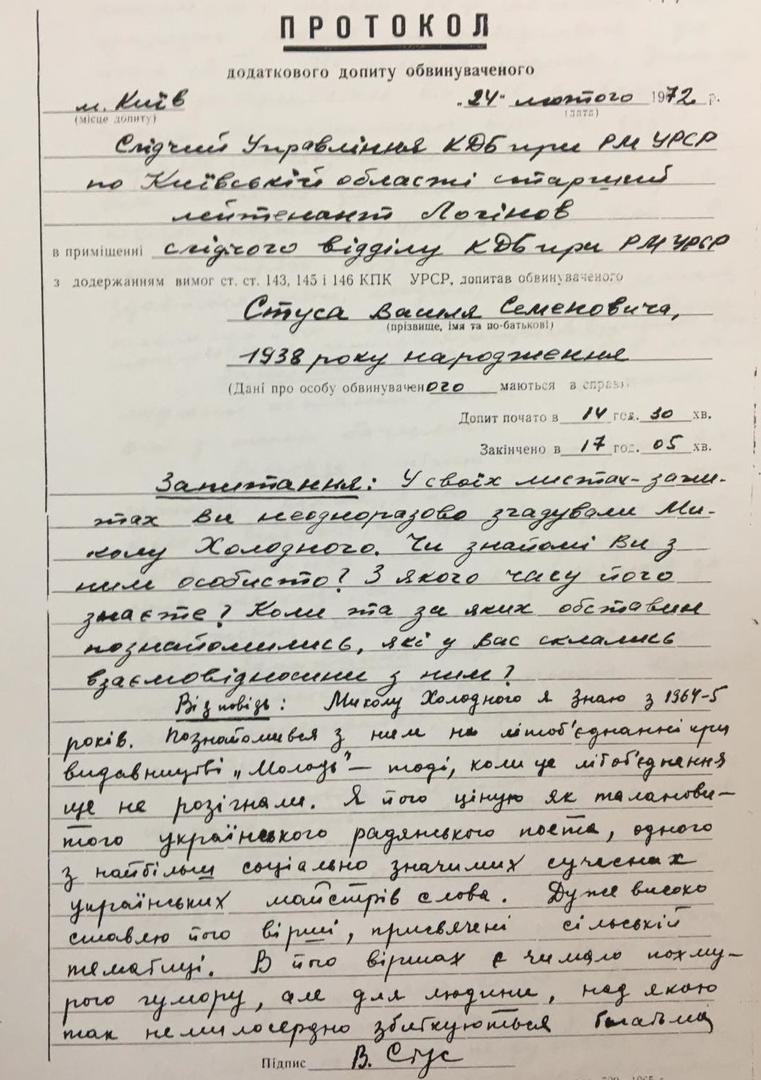 ПРОТОКОЛ
додаткового допиту обвинуваченого
м. Київ „24" лютого 1972 р.
(місце допиту) (дата)
Слідчий Управління КДБ при РМ УРСР
по Київській області старший
лейтенант Логінов
в приміщенні слідчого відділу КДБ при РМ УРСР
з додержанням вимог ст. ст. 143, 145 і 146 КПК УРСР, допитав обвинуваченого
Стуса Василя Семеновича,
(прізвище, імя та по-батькові)
1938 року народження
(Дані про особу обвинуваченого маються в справі
Допит почато в 14 год. 30 хв.
Закінчено в 17 год. 05 хв.
Запитання: У своїх листах-зажи-
тах Ви неодноразово згадували Ми-
колу Холодного. Чи знайомі Ви з
ним особисто? З якого часу його
знаєте? Коли та за яких обставин
познайомились, які у Вас склались
взаємовідносини з ним?
Відповідь: Миколу Холодного я знаю з 1964-5
років. Познайомився з ним на літоб'єднанні при
видавництві „Молодь" — тоді, коли це літоб'єднання
ще не розігнали. Я його ціную як талано­ви-
того українського радянського поета, одного
з найбільш соціально значимих сучасних
українських майстрів слова. Дуже високо
ставлю його вірші, присвячені сільській
тематиці. В його віршах є чимало похму-
рого гумору, але для людини, над якою
так немилосердно збиткуються багатьма
Підпис В. Стус